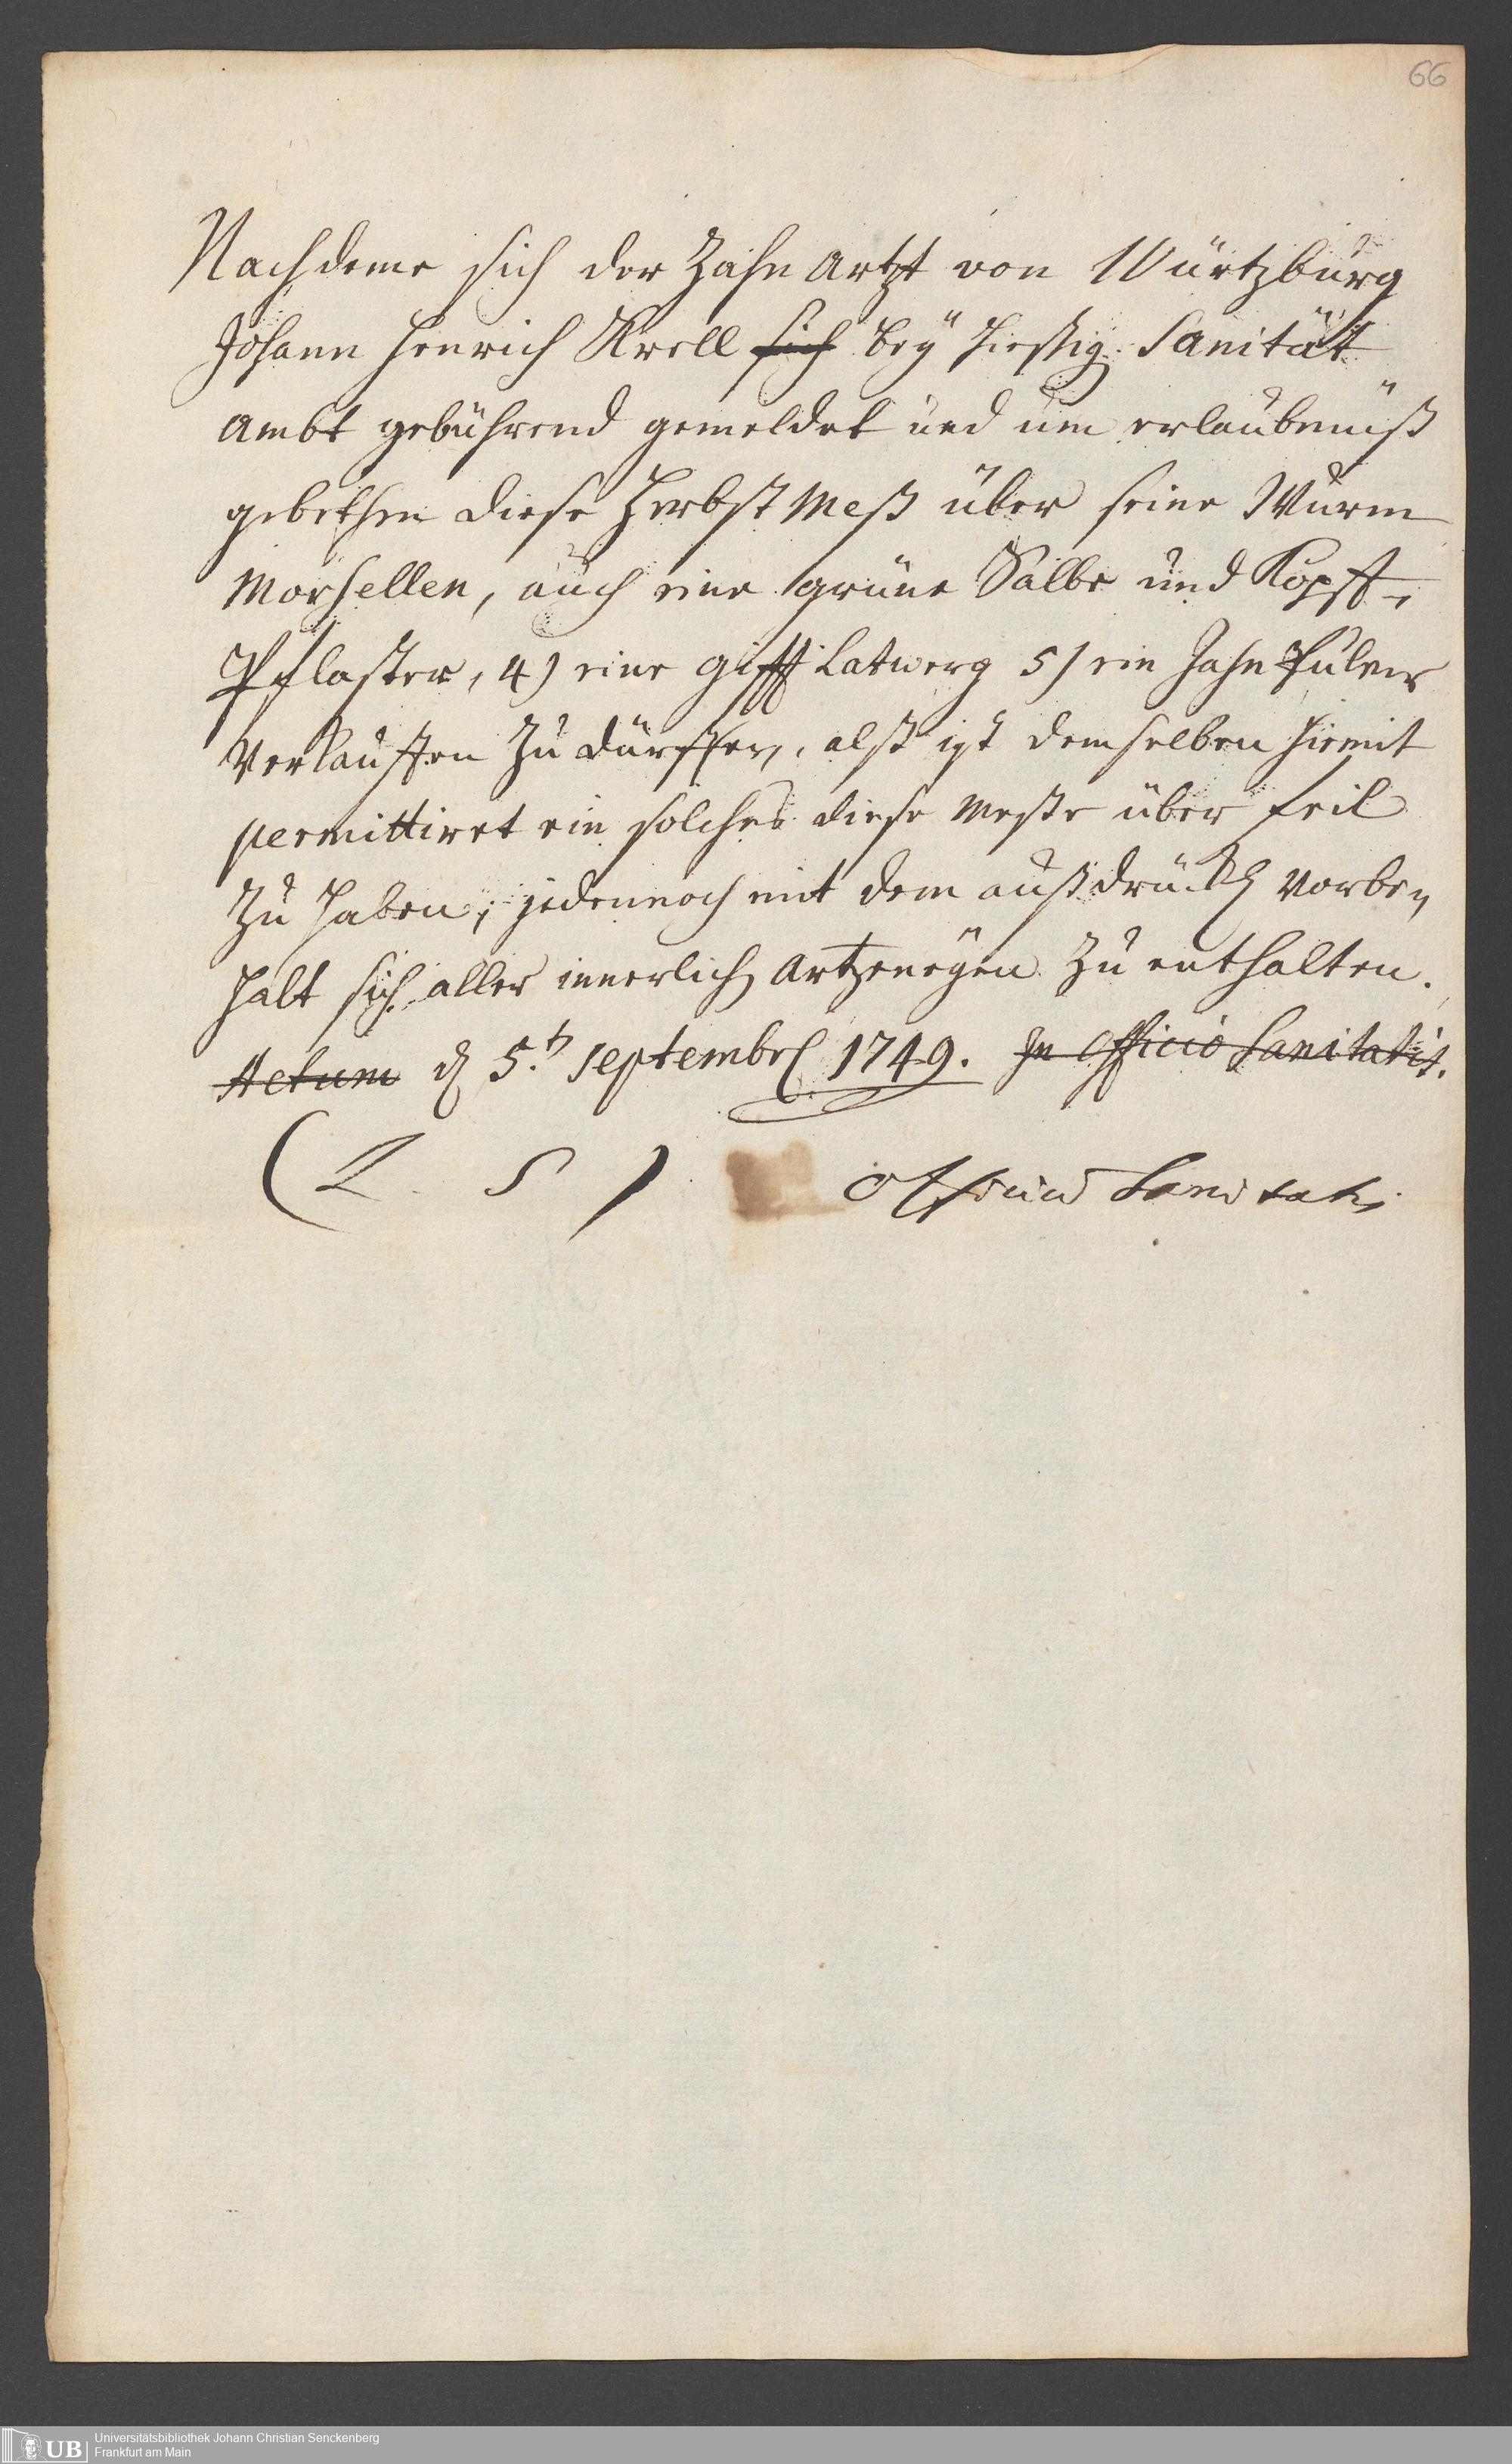 66
Nachdeme sich der Zahn Artzt von Würtzburg
Johann Henrich Krell sich bey hiesig. Sanität
Ambt gebührend gemeldet und um erlaubnüß
gebethen diese Herbst Meß über seine Wurm
Morsellen, auch eine grüne Salbe und Kopff-
Pflaster, 4) eine Gifft Latwerg 5) ein Zahn Pulver
Verkauffen zu dürffen, alß ist demselben hiemit
permittiret ein solches diese Messe über feil
zu haben, jedennoch mit dem außdrückl Vorbe,
halt sich aller innerlich Artzeneyen zu enthalten.
Actum d 5.t Septembr 1749. In Officio Sanitatis.
(L. S) Officium Sanitatis
UB Universitätsbibliothek Johann Christian Senckenberg
Frankfurt am Main